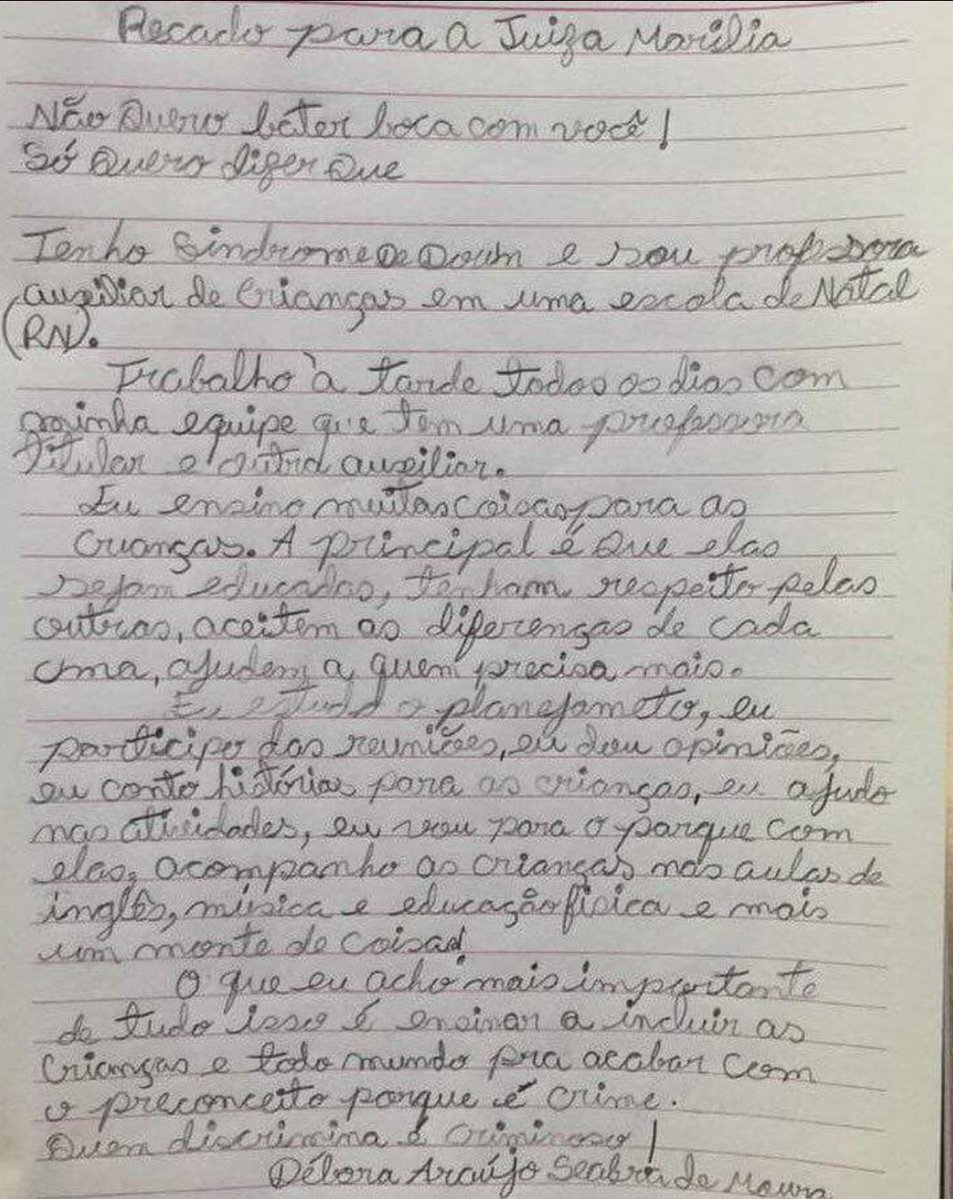 Recado para a Juiza Marilia
Não Quero bater boca com você!
Só Quero dizer Que
Tenho Sindrome De Down e sou professora
auxiliar de Crianças em uma escola de Natal
(RN).
Trabalho à tarde todos os dias com
minha equipe que tem uma professora
titular e outra auxiliar.
Eu ensino muitas coisas para as
crianças. A principal é Que elas
sejam educadas, tenham respeito pelas
outras, aceitem as diferenças de cada
uma, ajudem a quem precisa mais.
Eu estudo o planejameto, eu
participo das reuniões, eu dou opiniões,
eu conto histórias para as crianças, eu ajudo
nas atividades, eu vou para o parque com
elas, acompanho as crianças nas aulas de
inglês, música e educação física e mais
um monte de coisas!
O que eu acho mais importante
de tudo isso é ensinar a incluir as
crianças e todo mundo pra acabar com
o preconceito porque é crime.
Quem discrimina é criminoso!
Débora Araújo Seabra de Moura